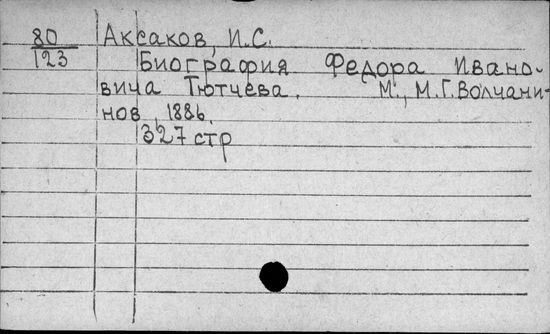 80 Аксаков, И.С.
123 Биография Федора Ивано-
вича Тютчева. М., М.Г.Волчани-
нов, 1886.
327 стр